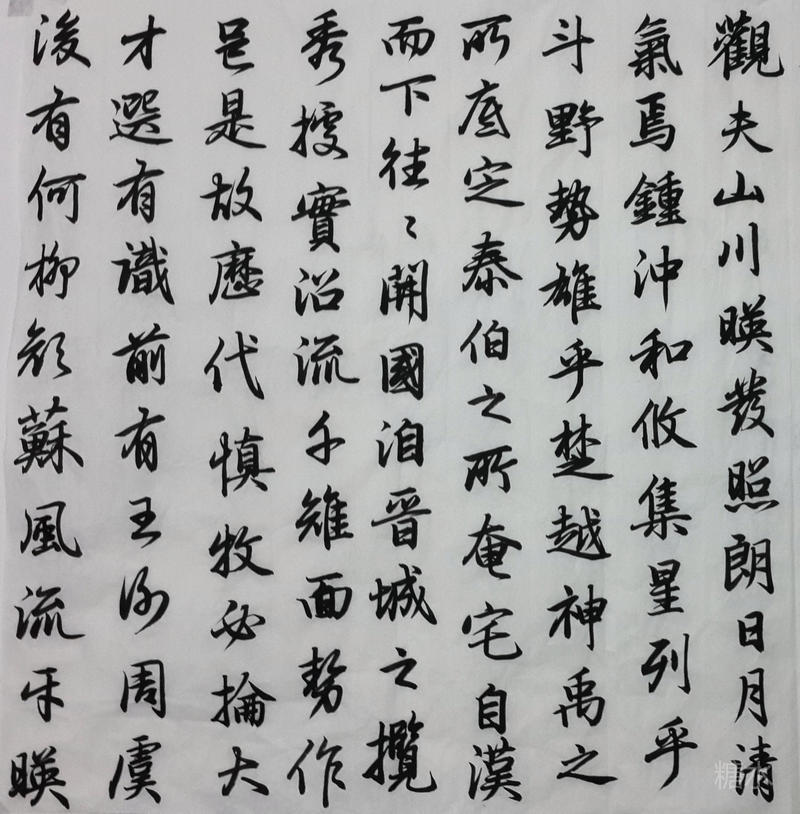 觀夫山川暎發照朗日月清
氣焉鍾沖和攸集星列乎
斗野勢雄乎楚越神禹之
所底定泰伯之所奄宅自漢
而下往々開國洎晉城之攬
秀據實沿流千雉面勢作
邑是故歷代慎牧必掄大
才選有識前有王謝周虞
後有何柳顏蘇風流互暎
糖